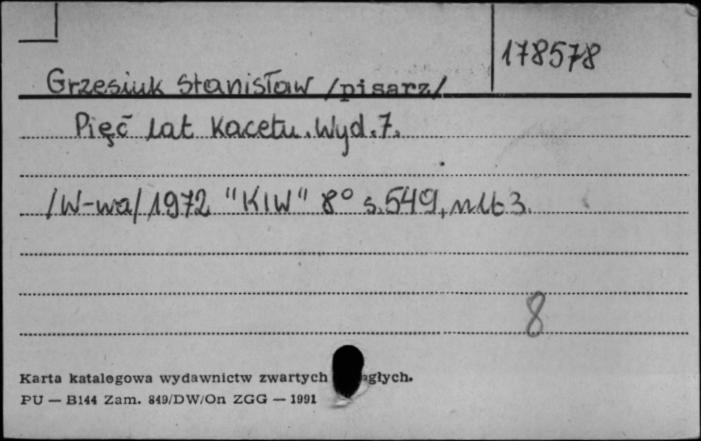 178578
Grzesiuk Stanisław /pisarz/
Pięć lat kacetu. Wyd. 7.
/W-wa/ 1972 "KIW" 8° s. 549, nlb 3.
8
Karta katalogowa wydawnictw zwartych głych.
PU — B144 Zam. 849/DW/On ZGG — 1991